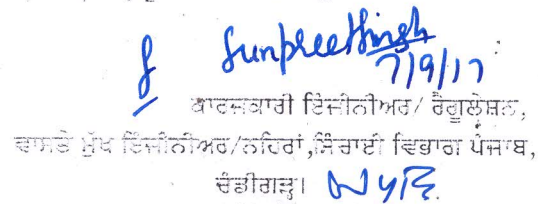 Sunpreet Singh
7/9/17
ਕਾਰਜਕਾਰੀ ਇੰਜੀਨੀਅਰ/ ਰੈਗੂਲੇਸ਼ਨ,
ਵਾਸਤੇ ਮੁੱਖ ਇੰਜੀਨੀਅਰ/ਨਹਿਰਾਂ,ਸਿੰਚਾਈ ਵਿਭਾਗ ਪੰਜਾਬ,
ਚੰਡੀਗੜ੍ਹ।